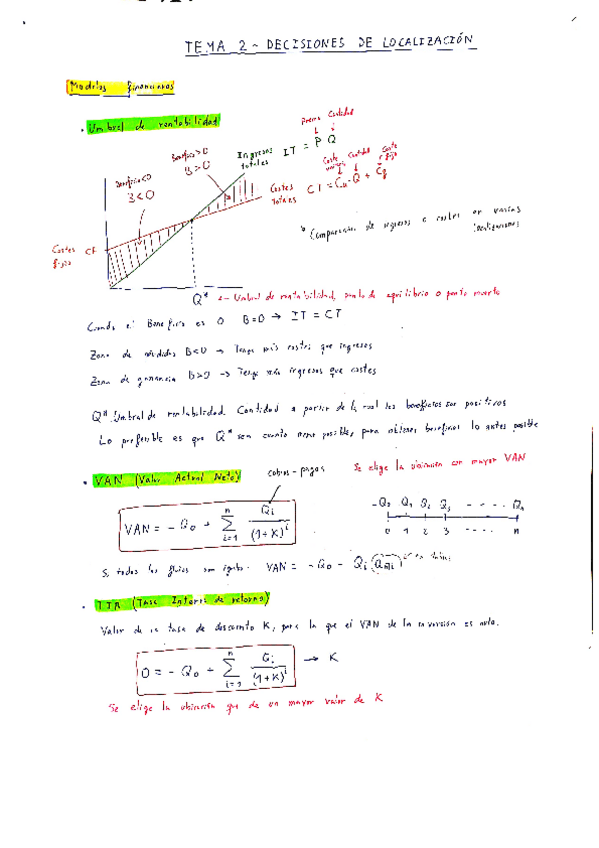 TEMA 2 ~ DECISIONES DE LOCALIZACIÓN
Modelos financieros
• Umbral de rentabilidad
Precio Cantidad
IT = P Q
Ingresos totales
Beneficio>0
B>0
Beneficio<0
B<0
Coste Cantidad Coste fijo
CT = Cu·Q + Cf
Costes totales
Costes fijos CF
* Comparación de ingresos o costes en varias localizaciones
Q* ← Umbral de rentabilidad, punto de equilibrio o punto muerto
Cuando el Beneficio es 0 B=0 → IT = CT
Zona de pérdidas B<0 → Tengo más costes que ingresos
Zona de ganancia B>0 → Tengo más ingresos que costes
Q* Umbral de rentabilidad. Cantidad a partir de la cual los beneficios son positivos
Lo preferible es que Q* sea cuanto menor posible, para obtener beneficios lo antes posible
• VAN (Valor Actual Neto)
cobros - pagos
Se elige la ubicación con mayor VAN
VAN = - Q0 + n Σ i=1 Qi (1+K)^i
-Q0 Q1 Q2 Q3 - - - - Qn
0 1 2 3 - - - - n
Si todos los flujos son iguales. VAN = -Q0 - Qi
• TIR (Tasa Interna de retorno)
Valor de la tasa de descuento K, para la que el VAN de la inversión es nulo.
0 = - Q0 + n Σ i=1 Qi (1+K)^i → K
Se elige la ubicación que de un mayor valor de K